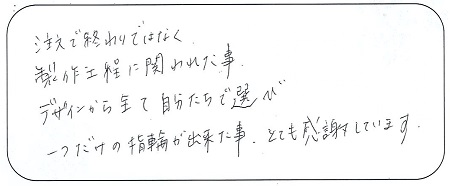 注文で終わりではなく
製作工程に関われた事.
デザインから全て自分たちで選び
一つだけの指輪が出来た事. とても感謝しています.